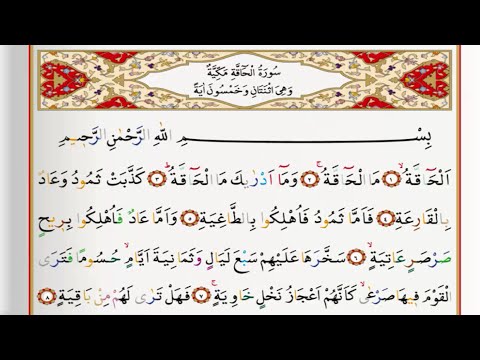 سُورَةُ الْحَاقَّةِ مَكِّيَّةٌ
وَهِيَ اثْنَتَانِ وَخَمْسُونَ اٰيَةً
بِسْمِ اللّٰهِ الرَّحْمٰنِ الرَّحِيمِ
اَلْحَٓاقَّةُۙ ﴿١﴾ مَا الْحَٓاقَّةُۚ ﴿٢﴾ وَمَٓا اَدْرٰيكَ مَا الْحَٓاقَّةُۜ ﴿٣﴾ كَذَّبَتْ ثَمُودُ وَعَادٌ
بِالْقَارِعَةِ ﴿٤﴾ فَاَمَّا ثَمُودُ فَاُهْلِكُوا بِالطَّاغِيَةِ ﴿٥﴾ وَاَمَّا عَادٌ فَاُهْلِكُوا بِرِيحٍ
صَرْصَرٍ عَاتِيَةٍۙ ﴿٦﴾ سَخَّرَهَا عَلَيْهِمْ سَبْعَ لَيَالٍ وَثَمَانِيَةَ اَيَّامٍۙ حُسُومًا فَتَرَى
الْقَوْمَ فِيهَا صَرْعٰىۙ كَاَنَّهُمْ اَعْجَازُ نَخْلٍ خَاوِيَةٍۚ ﴿٧﴾ فَهَلْ تَرٰى لَهُمْ مِنْ بَاقِيَةٍ ﴿٨﴾